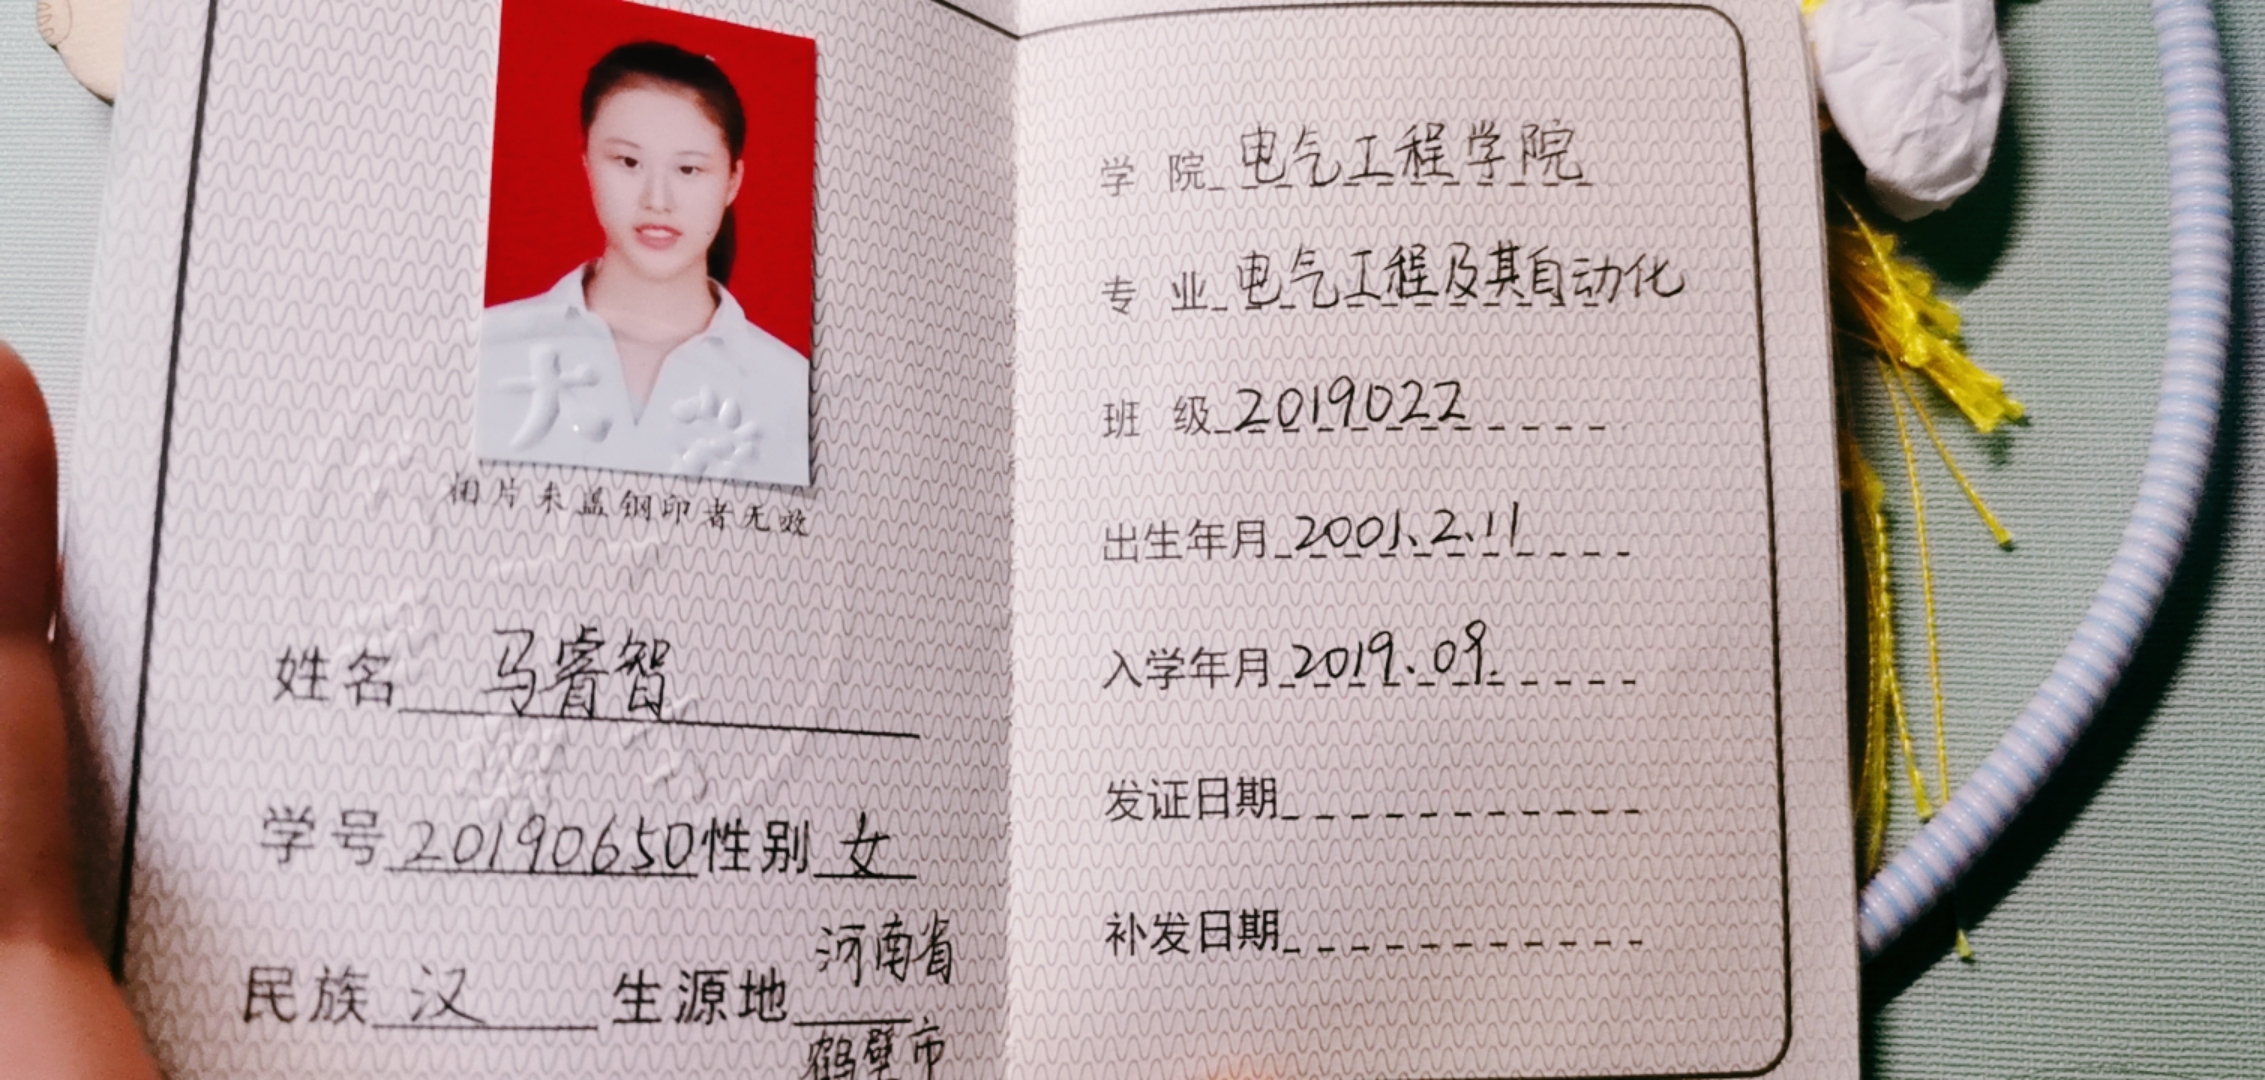 大学
相片未盖钢印者无效
姓名 马睿智
学号 20190650 性别 女
民族 汉 生源地 河南省
鹤壁市
学院 电气工程学院
专业 电气工程及其自动化
班级 2019022
出生年月 2001.2.11
入学年月 2019.09.
发证日期
补发日期